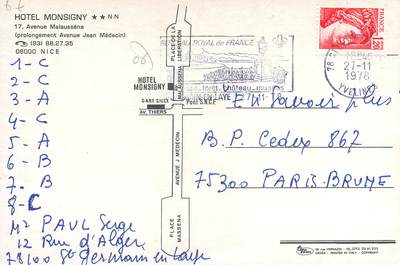 HOTEL MONSIGNY ★★NN
17, Avenue Malausséna
(prolongement Avenue Jean Médecin)
(93) 88.27.35
06000 NICE
1-C
2-C
3-A
4-C
5-A
6-B
7-B
8-C
Mr PAUL Serge
12 Rue d'Alger
78100 St Germain en Laye
06
PLACE DE LA LIBERATION
MALAUSSENA
HOTEL MONSIGNY
GARE SNCF
Pont S.N.C.F.
AV. THIERS
AVENUE J MEDECIN
PLACE MASSENA
ROYAL de FRANCE
forêt, château, musées
EN LAYE
78
27-11
1978
YVELINES
1,20
En Savoir plus
B.P. Cedex 867
75300 PARIS-BRUNE